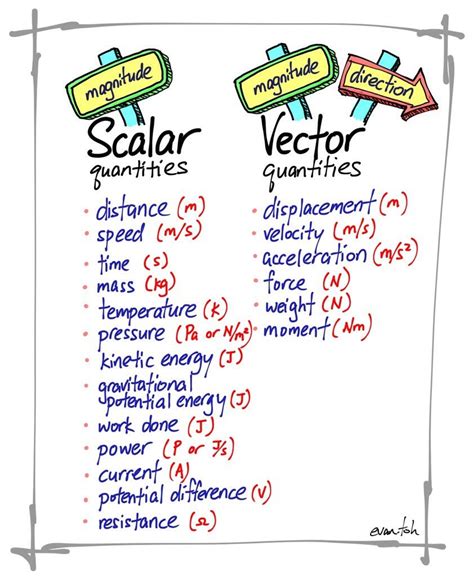 magnitude
Scalar
quantities
distance (m)
speed (m/s)
time (s)
mass (kg)
temperature (K)
pressure (Pa or N/m²)
kinetic energy (J)
gravitational
potential energy (J)
work done (J)
power (P or J/s)
current (A)
potential difference (V)
resistance (Ω)
magnitude
direction
Vector
quantities
displacement (m)
velocity (m/s)
acceleration (m/s²)
force (N)
weight (N)
moment (Nm)
evantoh